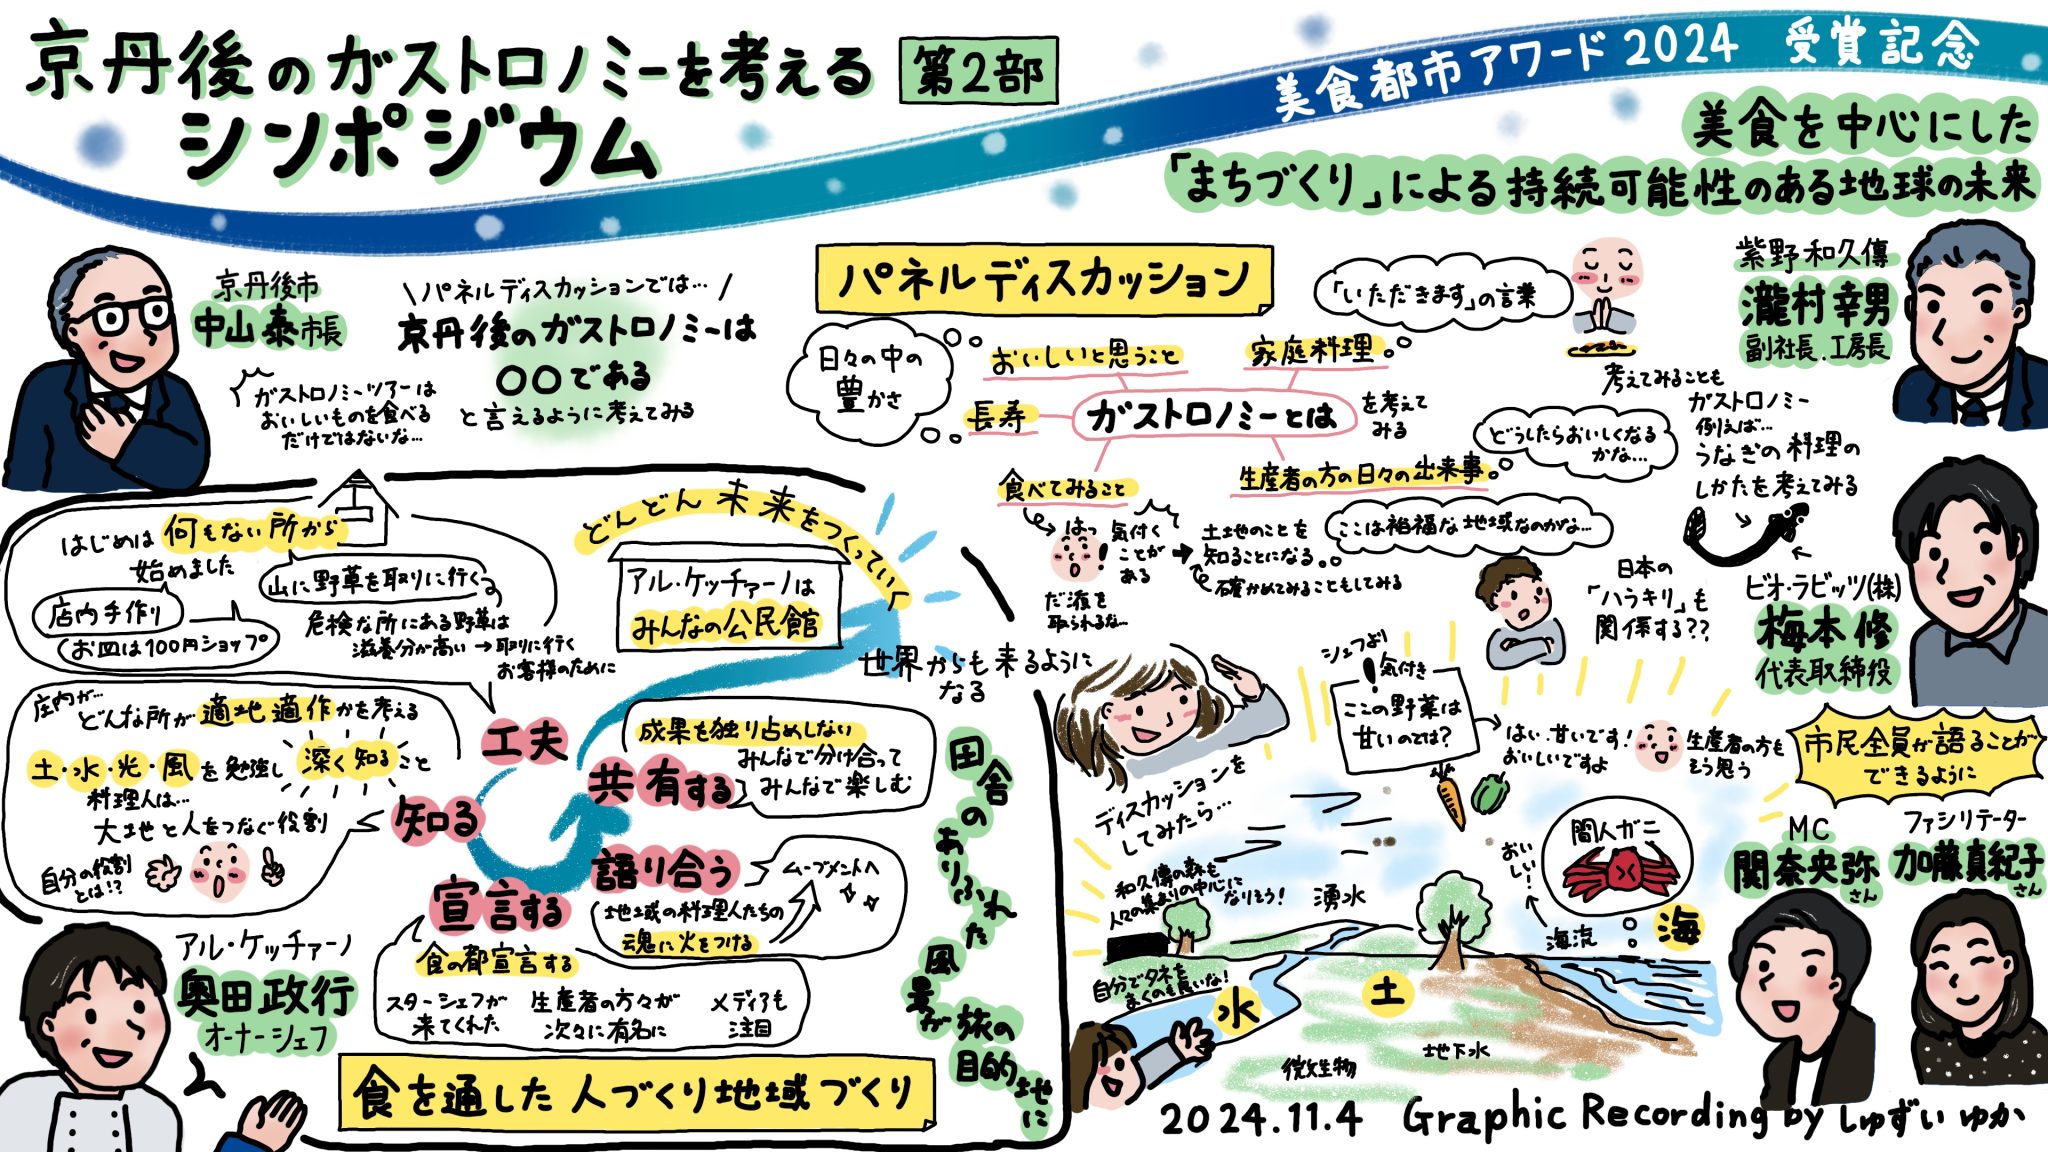 京丹後のガストロノミーを考える
シンポジウム
第2部
美食都市アワード2024 受賞記念
美食を中心にした
「まちづくり」による持続可能性のある地球の未来
京丹後市
中山泰市長
パネルディスカッションでは…
京丹後のガストロノミーは
〇〇である
と言えるように考えてみる
ガストロノミーツアーは
おいしいものを食べる
だけではないな…
パネルディスカッション
日々の中の
豊かさ
おいしいと思うこと
家庭料理
「いただきます」の言葉
長寿
ガストロノミーとは
を考えて
みる
食べてみること
生産者の方の日々の出来事
どうしたらおいしくなる
かな…
ここは裕福な地域なのかな…
はっ
気付く
ことが
ある
土地のことを
知ることになる。
確かめてみることもしてみる
だ液を
取られるな…
紫野和久傳
瀧村幸男
副社長.工房長
考えてみることも
ガストロノミー
例えば…
うなぎの料理の
しかたを考えてみる
日本の
「ハラキリ」も
関係する??
ビオ・ラビッツ(株)
梅本修
代表取締役
市民全員が語ることが
できるように
MC
関奈央弥さん
ファシリテーター
加藤真紀子さん
はじめは何もない所から
始めました
店内手作り
お皿は100円ショップ
山に野草を取りに行く
危険な所にある野草は
滋養分が高い→取りに行く
お客様のために
どんどん未来をつくっていく
アル・ケッチァーノは
みんなの公民館
世界からも来るように
なる
庄内が…
どんな所が適地適作かを考える
土・水・光・風を勉強し深く知ること
料理人は…
大地と人をつなぐ役割
自分の役割
とは!?
工夫
知る
宣言する
語り合う
共有する
成果を独り占めしない
みんなで分け合って
みんなで楽しむ
ムーブメントへ
地域の料理人たちの
魂に火をつける
食の都宣言する
スターシェフが
来てくれた
生産者の方々が
次々に有名に
メディアも
注目
アル・ケッチァーノ
奥田政行
オーナーシェフ
食を通した人づくり地域づくり
田舎のありふれた風景が旅の目的地に
ディスカッションを
してみたら…
シェフより
気付き
ここの野菜は
甘いのでは?
はい、甘いです!
おいしいですよ
生産者の方も
そう思う
和久傳の森も
人々の集まりの中心に
なりそう!
湧水
間人ガニ
おいしい!
海流
海
自分でタネを
まくのも良いな!
水
土
微生物
地下水
2024.11.4 Graphic Recording by しゅずい ゆか